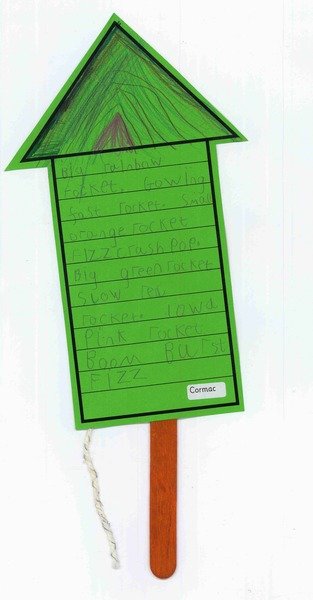 Big rainbow
rocket. Gowing
fast rocket. Smal
orange rocket
FIZZ crash Pop.
Big green rocket
Slow red
rocket. Lowd
Pink rocket
Boom Burst
FIZZ
Cormac